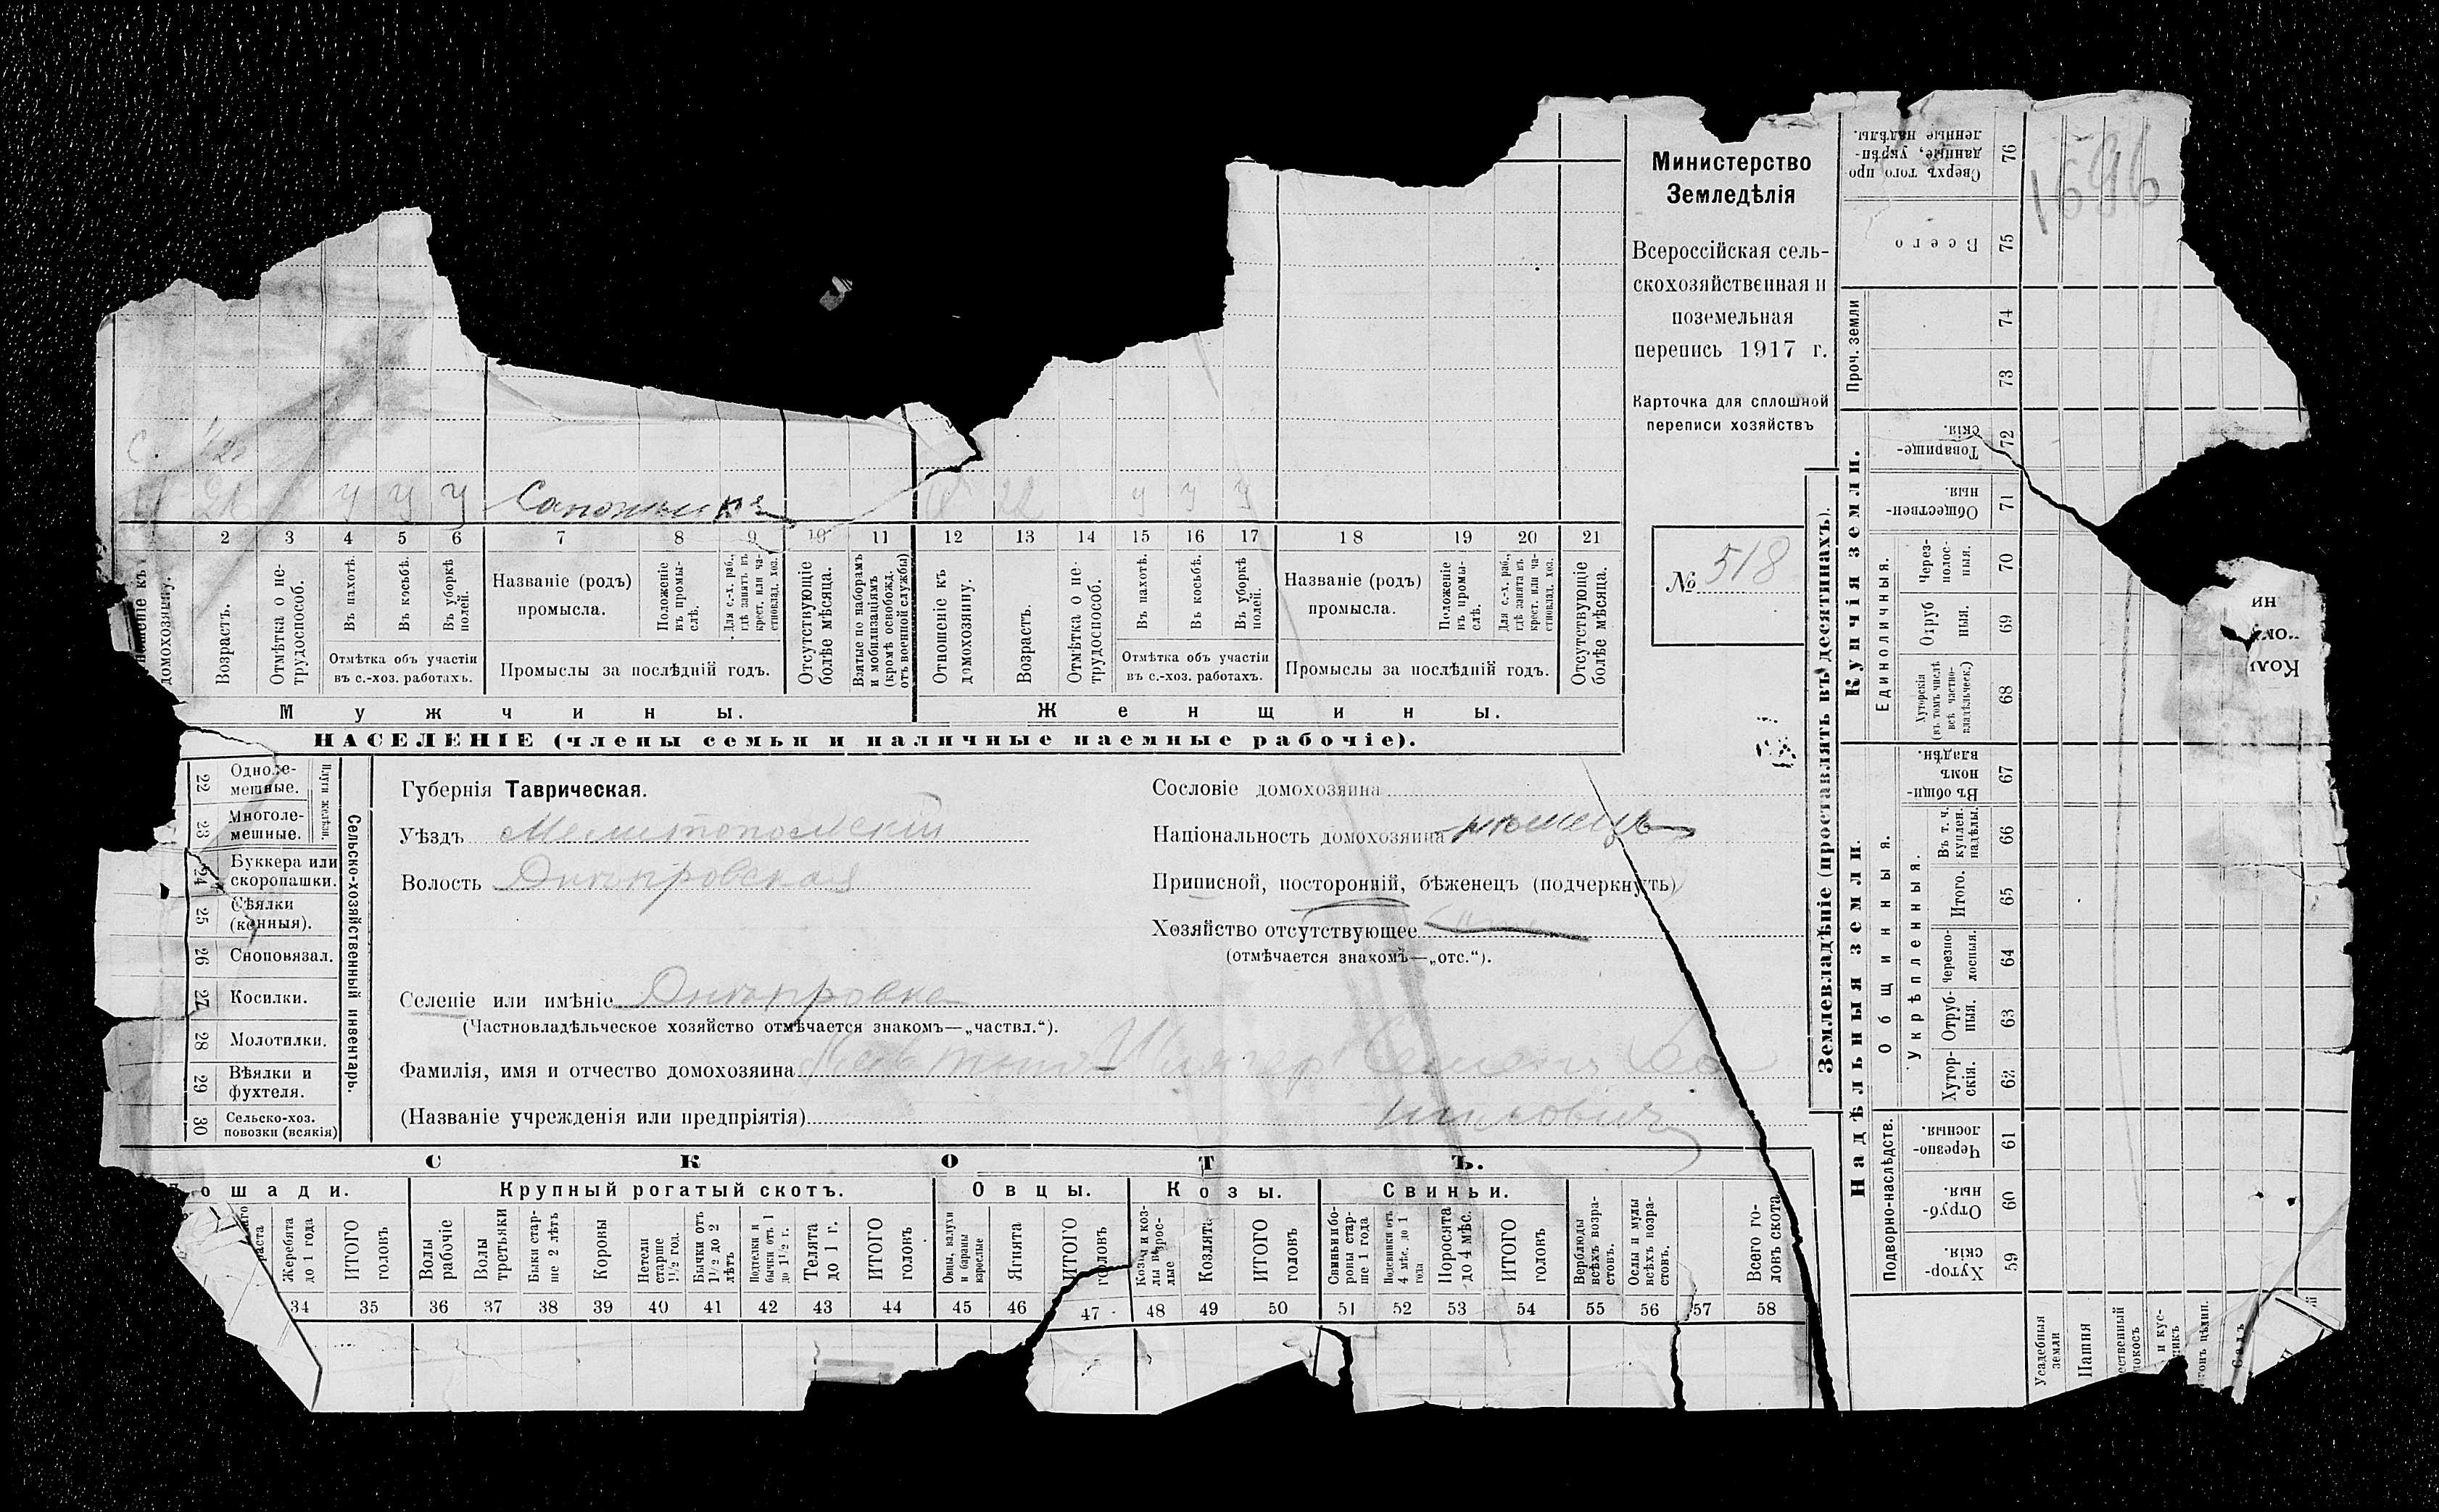 1696
Министерство
Земледѣлія
Всероссійская сель-
скохозяйственная и
поземельная
перепись 1917 г.
Карточка для сплошной
переписи хозяйствъ
№ 518
с.
у у у Сапожникъ
22 у у у
2 3 4 5 6 7 8 9 10 11 12 13 14 15 16 17 18 19 20 21
домохозяину.
Возрастъ.
Отмѣтка о не-
трудоспособ.
Въ пахотѣ.
Въ косьбѣ.
Въ уборкѣ
полей.
Отмѣтка объ участіи
въ с.-хоз. работахъ.
Названіе (родъ)
промысла.
Положеніе
въ промы-
слѣ.
Для с.-х. раб.,
гдѣ занятъ въ
крест. или ча-
стновлад. хоз.
Промыслы за послѣдній годъ.
Отсутствующіе
болѣе мѣсяца.
Взятые по наборамъ
и мобилизаціямъ
(кромѣ освобожд.
отъ военной службы)
Отношеніе къ
домохозяину.
Возрастъ.
Отмѣтка о не-
трудоспособ.
Въ пахотѣ.
Въ косьбѣ.
Въ уборкѣ
полей.
Отмѣтка объ участіи
въ с.-хоз. работахъ.
Названіе (родъ)
промысла.
Положеніе
въ промы-
слѣ.
Для с.-х. раб.,
гдѣ занята въ
крест. или ча-
стновлад. хоз.
Промыслы за послѣдній годъ.
Отсутствующіе
болѣе мѣсяца.
Мужчины.
Женщины.
НАСЕЛЕНІЕ (члены семьи и наличные наемные рабочіе).
22 Одноле-
мешные.
23 Многоле-
мешные.
24 Буккера или
скоропашки.
25 Сѣялки
(конныя).
26 Сноповязал.
27 Косилки.
28 Молотилки.
29 Вѣялки и
фухтеля.
30 Сельско-хоз.
повозки (всякія)
Сельско-хозяйственный инвентарь.
Губернія Таврическая.
Уѣздъ Мелитопольскій
Волость Днѣпровская
Селеніе или имѣніе Днѣпровка
(Частновладѣльческое хозяйство отмѣчается знакомъ—„частвл.“).
Фамилія, имя и отчество домохозяина
(Названіе учрежденія или предпріятія)
Сословіе домохозяина
Національность домохозяина нѣмецъ
Приписной, посторонній, бѣженецъ (подчеркнуть)
Хозяйство отсутствующее
(отмѣчается знакомъ—„отс.“).
СКОТЪ.
ошади.
Крупный рогатый скотъ.
Овцы.
Козы.
Свиньи.
Жеребята
до 1 года
ИТОГО
головъ
Волы
рабочіе
Волы
третьяки
Быки стар-
ше 2 лѣтъ
Коровы
Нетели
старше
1½ год.
Бычки отъ
1½ до 2
лѣтъ
Подтелки и
бычки отъ 1
до 1½ г.
Телята
до 1 г.
ИТОГО
головъ
Овцы, валухи
и бараны
взрослые
Ягнята
ИТОГО
головъ
Козы и коз-
лы взрос-
лые
Козлята
ИТОГО
головъ
Свиньи и бо-
ровы стар-
ше 1 года
Подсвинки отъ
4 мѣс. до 1
года
Поросята
до 4 мѣс.
ИТОГО
головъ
Верблюды
всѣхъ возра-
стовъ.
Ослы и мулы
всѣхъ возра-
стовъ.
Всего го-
ловъ скота
34 35 36 37 38 39 40 41 42 43 44 45 46 47 48 49 50 51 52 53 54 55 56 57 58
Землевладѣніе (проставлять въ десятинахъ).
Надѣльныя земли.
Купчія земли.
Проч. земли
Подворно-наслѣдств.
Общинныя.
Укрѣпленныя.
Единоличныя.
59 Хутор-
скія.
60 Отруб-
ныя.
61 Черезпо-
лосныя.
62 Хутор-
скія.
63 Отруб-
ныя.
64 Черезпо-
лосныя.
65 Итого.
66 Въ т. ч.
куплен.
надѣлы
67 Въ общи-
номъ
владѣн.
68 Хуторскія
(въ томъ числѣ
всѣ частно-
владѣльческ.)
69 Отруб
ныя.
70 Через-
полос-
ныя.
71 Обществен-
ныя.
72 Товарище-
скія.
73
74
75 Всего
76 Сверхъ того про
данные, укрѣп-
ленные надѣлы.
Усадебныя
земли
Пашня
Садъ